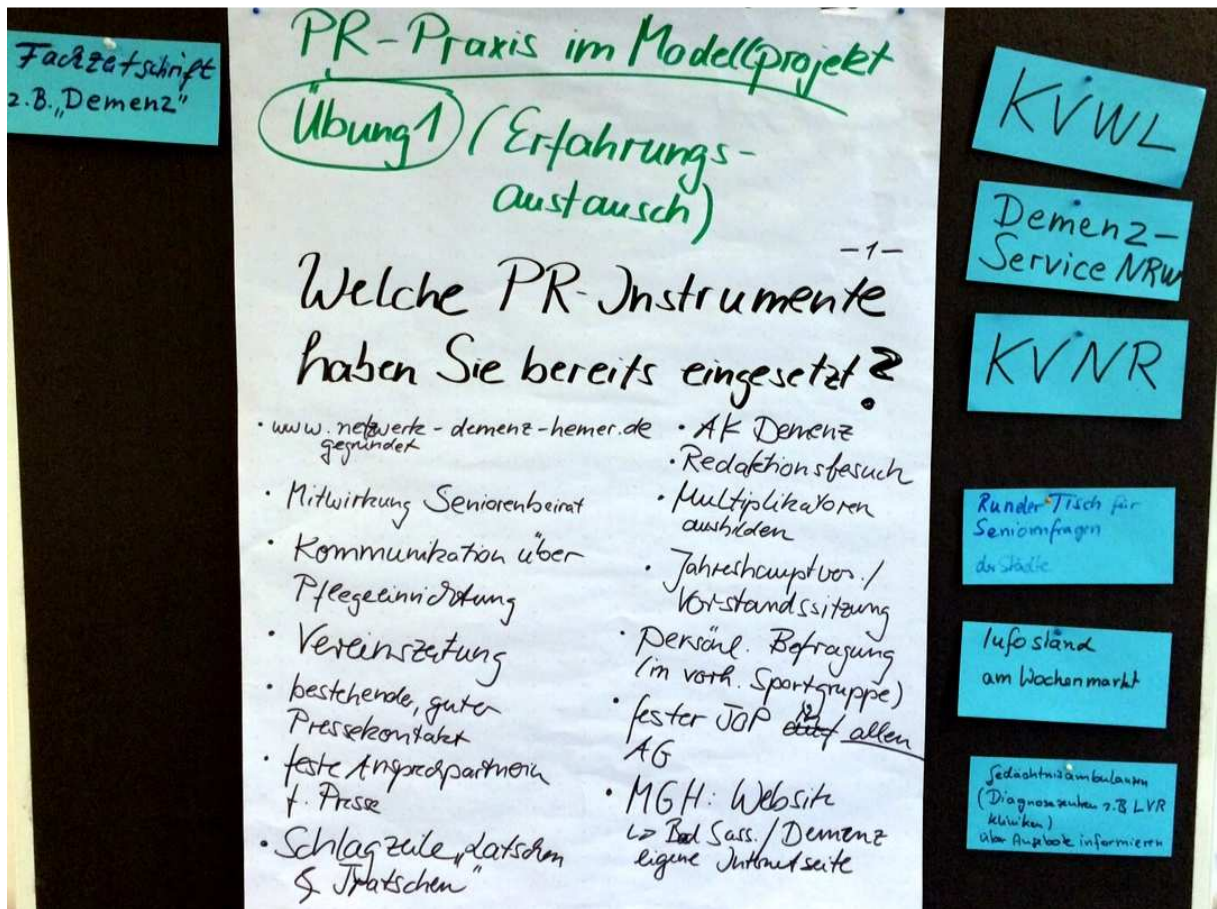 Fachzeitschrift
z.B. „Demenz"
PR-Praxis im Modellprojekt
Übung 1 (Erfahrungs-
austausch)
-1-
Welche PR-Instrumente
haben Sie bereits eingesetzt?
· www.netzwerk-demenz-hemer.de
gegründet
· Mitwirkung Seniorenbeirat
· Kommunikation über
Pflegeeinrichtung
· Vereinszeitung
· bestehender, guter
Pressekontakt
· feste Ansprechpartnerin
f. Presse
· Schlagzeile „Latschen
& Tratschen"
· AK Demenz
· Redaktionsbesuch
· Multiplikatoren
ausbilden
· Jahreshauptver./
Vorstandssitzung
· persönl. Befragung
(im vorh. Sportgruppe)
· fester TOP in allen
AG
· MGH: Website
↳ Bad Sass./Demenz
eigene Internetseite
KVWL
Demenz-
Service NRW
KVNR
Runder Tisch für
Seniorenfragen
der Städte
Infostand
am Wochenmarkt
Gedächtnisambulanzen
(Diagnosezentren z.B LVR
Kliniken)
über Angebote informieren